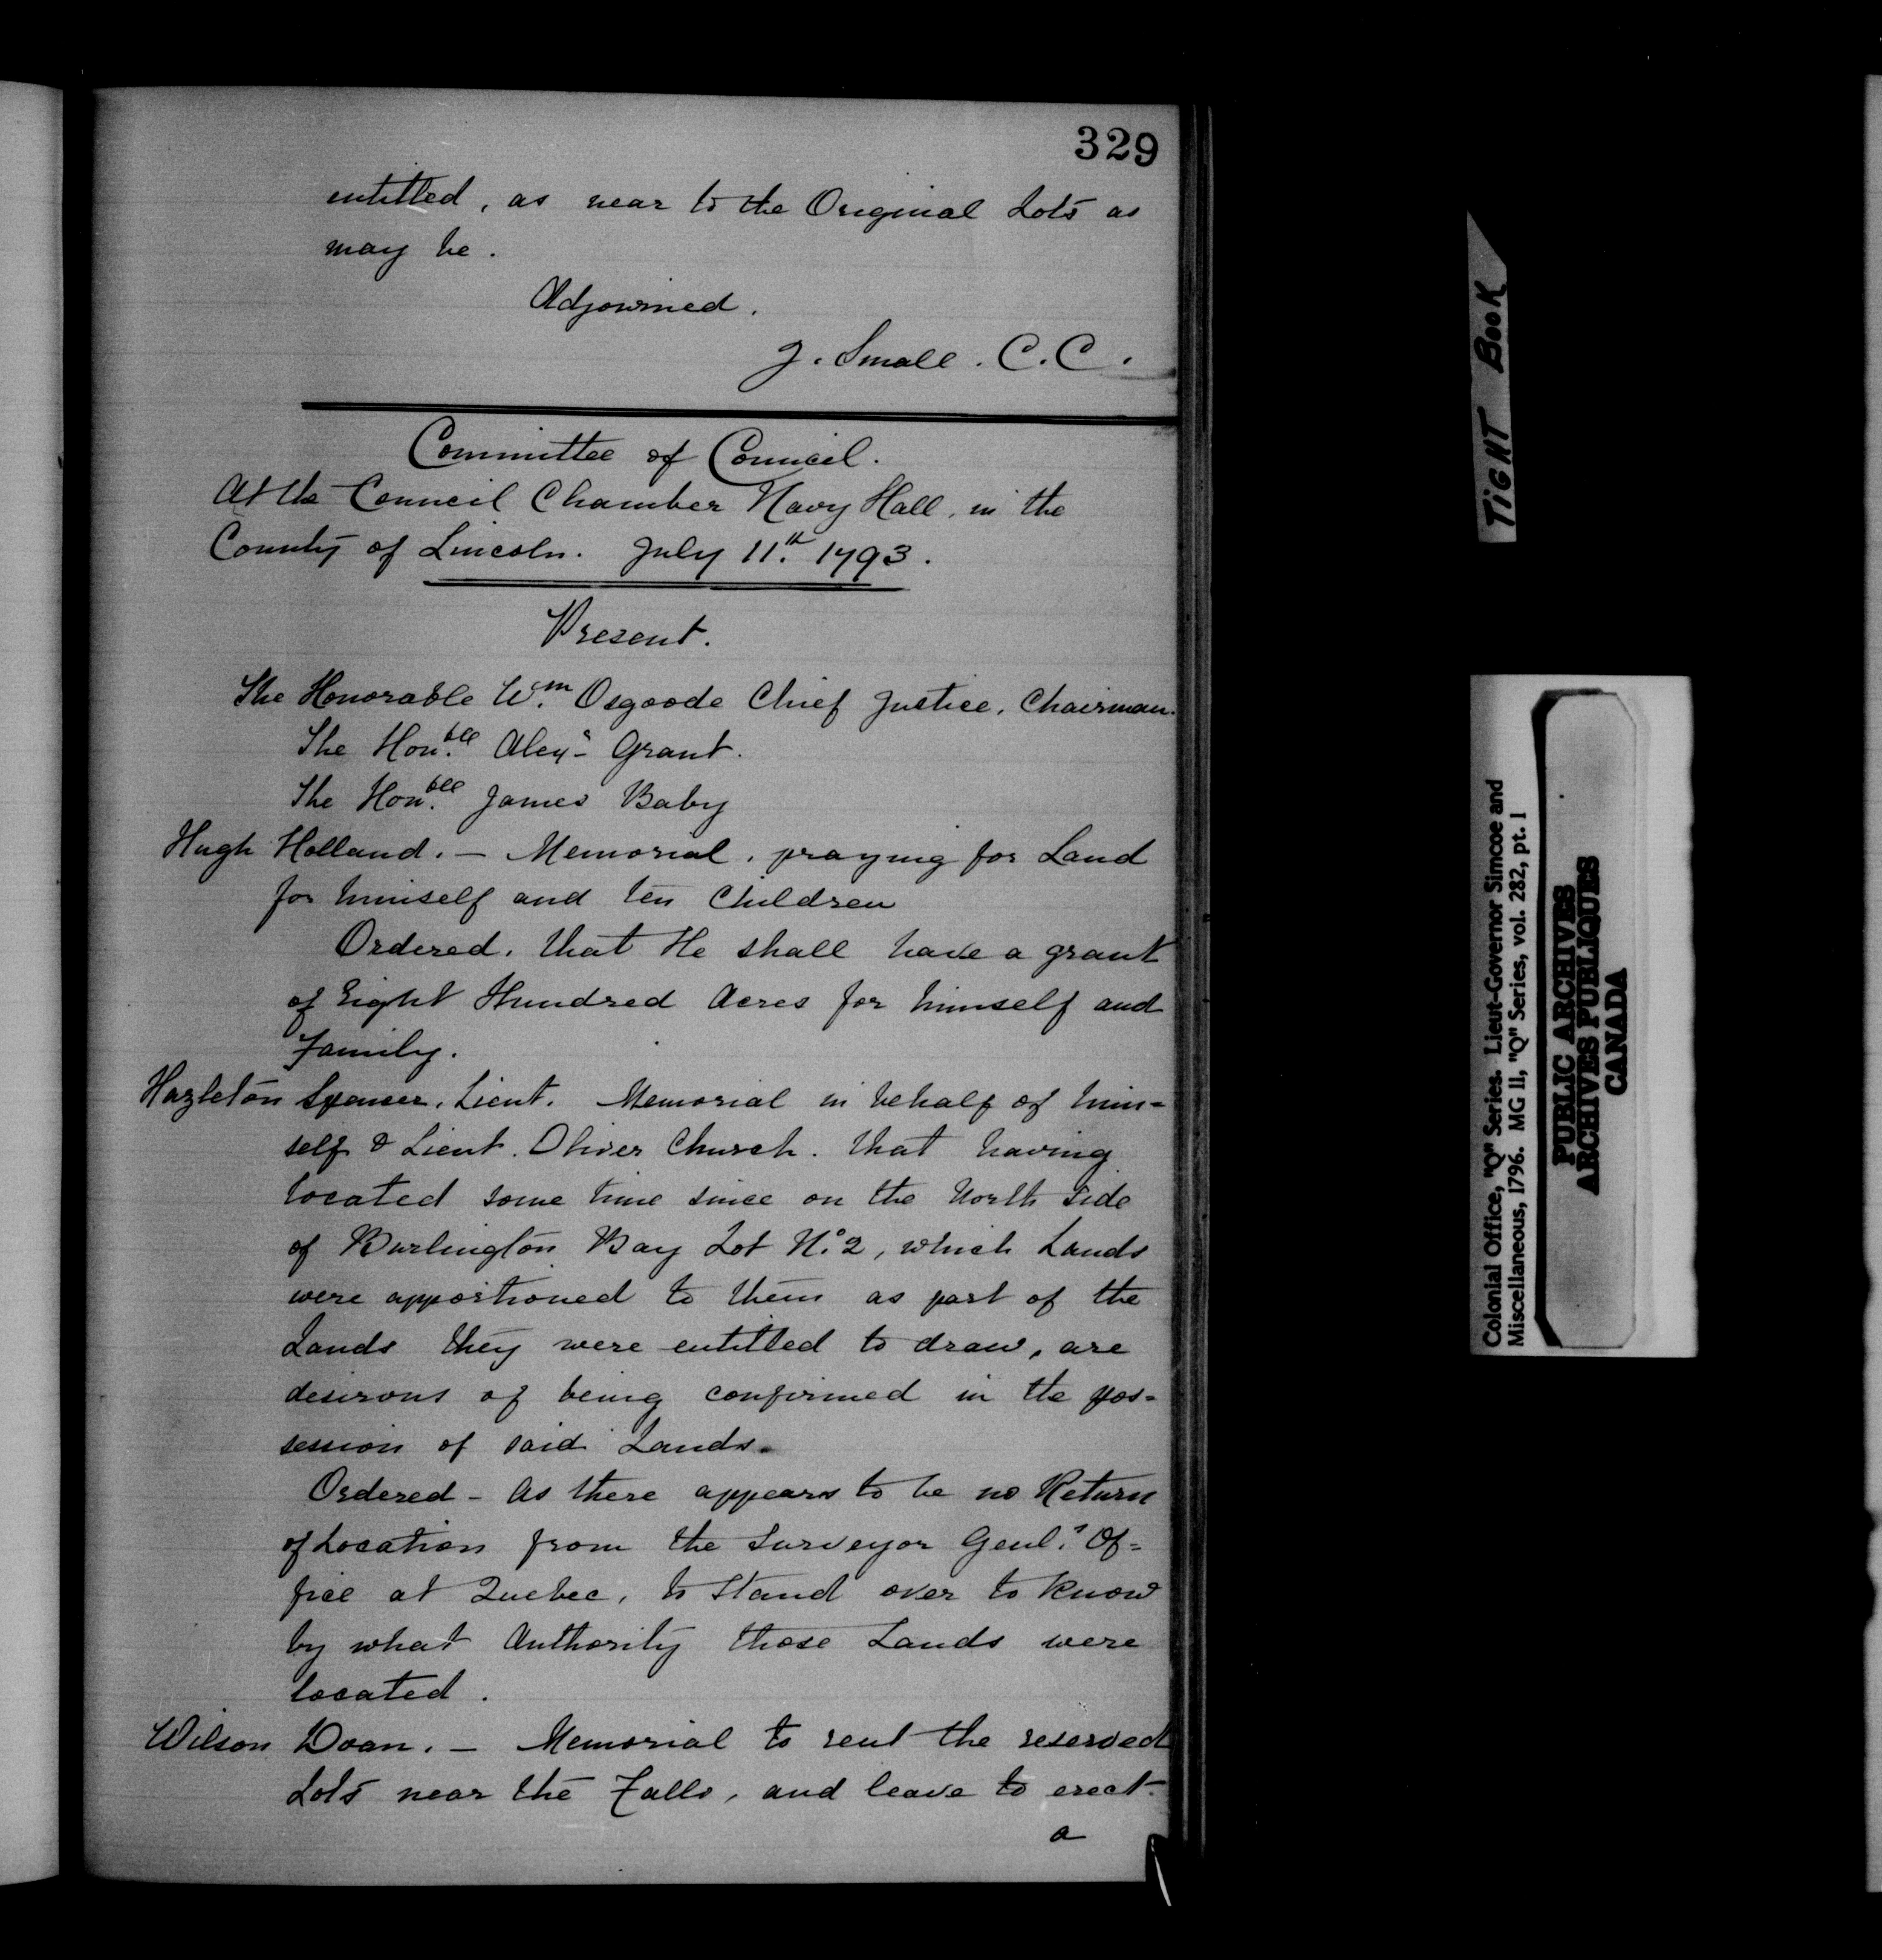 329
entitled, as near to the Original Lots as
may be.
Adjourned.
J. Small. C.C.
Committee of Council.
At the Council Chamber Navy Hall, in the
County of Lincoln. July 11th. 1793.
Present.
The Honorable Wm. Osgoode Chief Justice, Chairman.
The Honble. Alexr. Grant.
The Honble. James Baby
Hugh Holland. — Memorial, praying for Land
for himself and ten Children
Ordered, that He shall have a grant
of Eight Hundred Acres for himself and
Family.
Hazleton Spencer, Lieut. Memorial in behalf of him=
self & Lieut. Oliver Church. that having
located some time since on the North side
of Burlington Bay Lot No. 2, which Lands
were apportioned to them as part of the
Lands they were entitled to draw, are
desirous of being confirmed in the pos=
session of said Lands.
Ordered - As there appears to be no Return
of Location from the Surveyor Genl.s Of=
fice at Quebec, to Stand over to know
by what Authority those Lands were
located.
Wilson Doan. — Memorial to rent the reserved
Lots near the Falls, and leave to erect
a
TIGHT BOOK
Colonial Office, "Q" Series. Lieut-Governor Simcoe and
Miscellaneous, 1796. MG 11, "Q" Series, vol. 282, pt. 1
PUBLIC ARCHIVES
ARCHIVES PUBLIQUES
CANADA